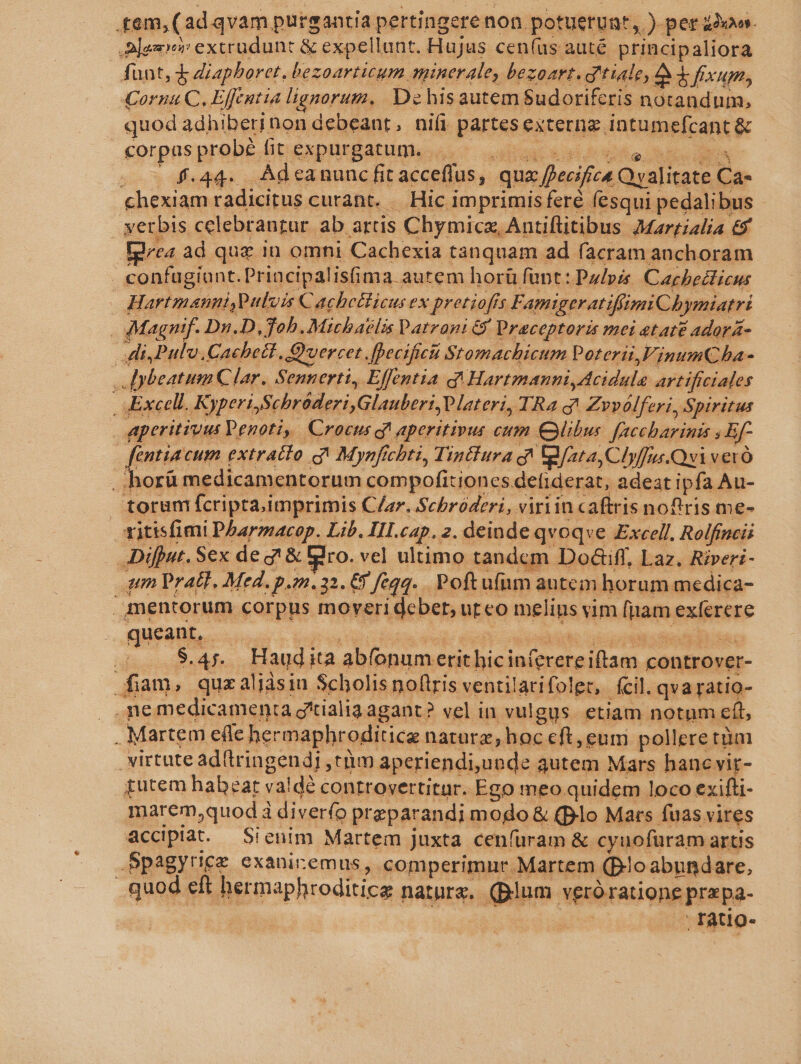 tem, (ad qvam purgantia pertingere non potuerunt,) per
extrudunt & expellunt. Hujus cenſus autē principaliora
ſunt, ♁ diaphoret. bezoarticum minerale, bezoart. ♂tiale, ♁ fixum,
Cornu C. Eſſentia lignorum. De his autem Sudoriferis notandum,
quod adhiberi non debeant, niſi partes externæ intumeſcant &
corpus probè ſit expurgatum.
§. 44. Ad ea nunc fit acceſſus, quæ ſpecifica Qvalitate Ca-
chexiam radicitus curant. Hic imprimis ferè ſesqui pedalibus
verbis celebrantur ab artis Chymicæ Antiſtitibus Martialia &
♀rea ad quæ in omni Cachexia tanquam ad ſacram anchoram
confugiunt. Principalisſima autem horū ſunt: Pulvis Cachecticus
Hartmanni, Pulvis Cachecticus ex pretioſis Famigeratiſſimi Chymiatri
Magnif. Dn. D. Joh. Michaëlis Patroni & Præceptoris mei ætatē adoran-
di, Pulv. Cachect. Qvercet. ſpecificū Stomachicum Poterii, Vinum Cha-
lybeatum Clar. Sennerti, Eſſentia ♂ Hartmanni, Acidulæ artificiales
Excell. Kyperi, Schröderi, Glauberi, Plateri, TRa ♂ Zvvölferi, Spiritus
aperitivus Penoti, Crocus ♂ aperitivus cum ⊖libus ſaccharinis, Eſ-
ſentia cum extracto ♂ Mynſichti, Tinctura ♂ ♀ſata, Clyſſus. Qvi verò
horū medicamentorum compoſitiones deſiderat, adeat ipſa Au-
torum ſcripta, imprimis Clar. Schröderi, viri in caſtris noſtris me-
ritisſimi Pharmacop. Lib. III. cap. 2. deinde qvoqve Excell. Rolfincii
Diſput. Sex de ♂ & ♀ro. vel ultimo tandem Doctiſſ. Laz. Riveri-
um Pract. Med. p.m. 32. & ſeqq. Poſt uſum autem horum medica-
mentorum corpus moveri debet, ut eo melius vim ſuam exſerere
queant.
§. 45. Haud ita abſonum erit hic inſerere iſtam controver-
ſiam, quæ aliàs in Scholis noſtris ventilari ſolet, ſcil. qva ratio-
ne medicamenta ♂tialia agant? vel in vulgus etiam notum eſt,
Martem eſſe hermaphroditicæ naturæ, hoc eſt, eum pollere tùm
virtute adſtringendi, tùm aperiendi, unde autem Mars hanc vir-
tutem habeat valdè controvertitur. Ego meo quidem loco exiſti-
marem, quod à diverſo præparandi modo & 🜖lo Mars ſuas vires
accipiat. Si enim Martem juxta cenſuram & cynoſuram artis
Spagyricæ examinemus, comperimur Martem 🜖lo abundare,
quod eſt hermaphroditicæ naturæ. 🜖lum verò ratione præpa-
ratio-